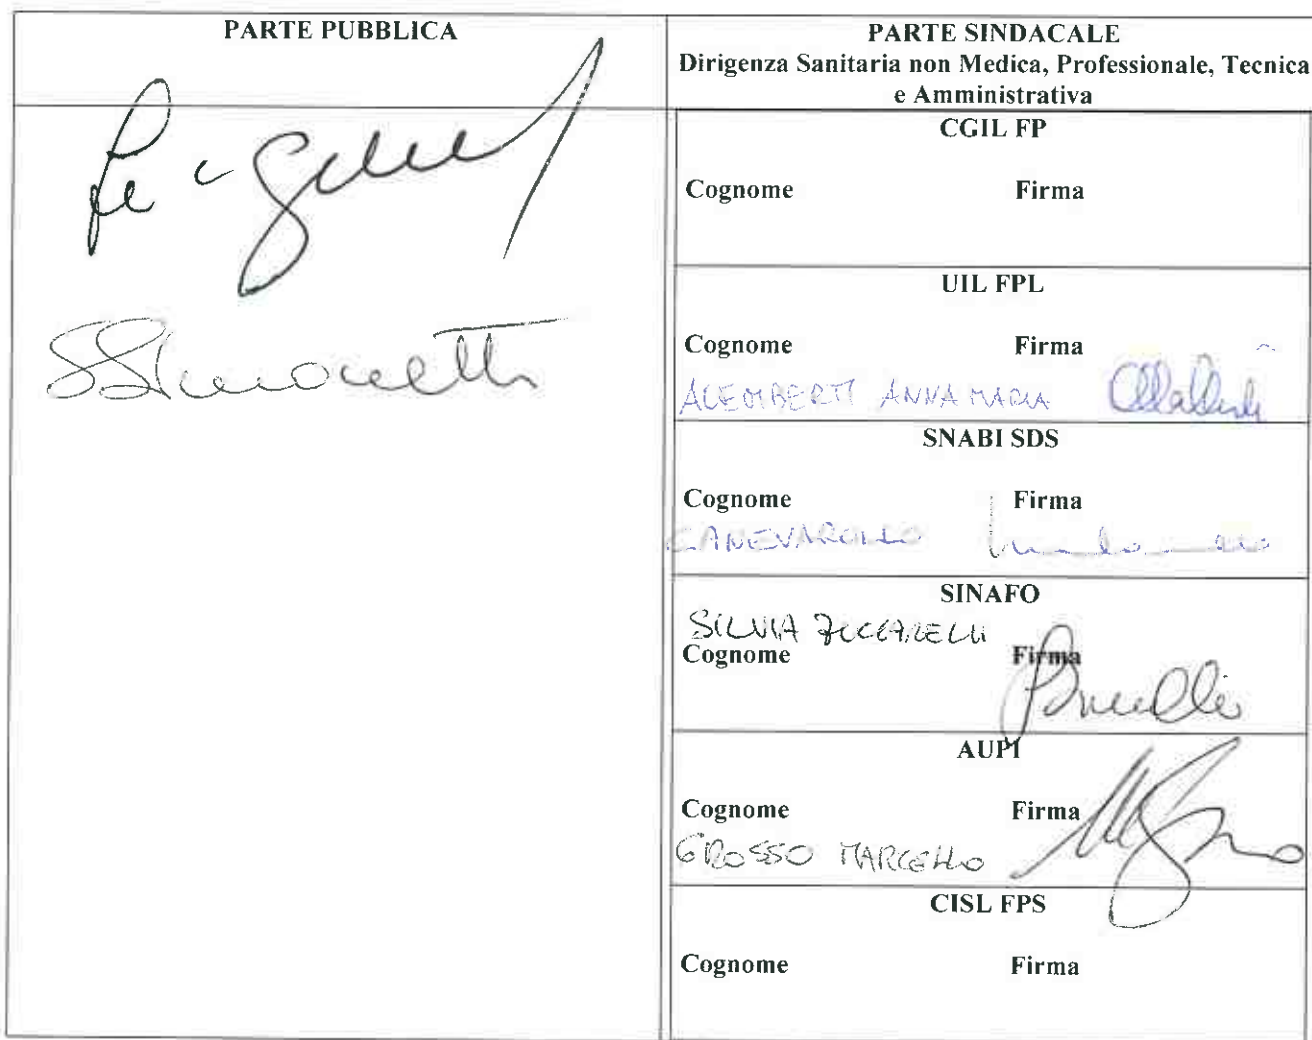 PARTE PUBBLICA
PARTE SINDACALE
Dirigenza Sanitaria non Medica, Professionale, Tecnica
e Amministrativa
CGIL FP
Cognome Firma
UIL FPL
Cognome Firma
ALEMBERTI ANNA MARIA
SNABI SDS
Cognome Firma
CANEVAROLLO
SINAFO
SILVIA ZUCCARELLI
Cognome Firma
AUPI
Cognome Firma
GROSSO MARCELLO
CISL FPS
Cognome Firma